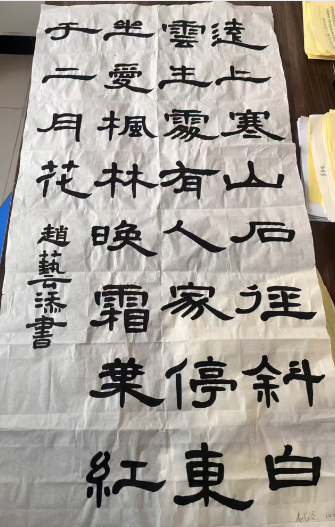 遠上寒山石徑斜白
雲生處有人家停東
坐愛楓林晚霜葉紅
于二月花
趙藝添書